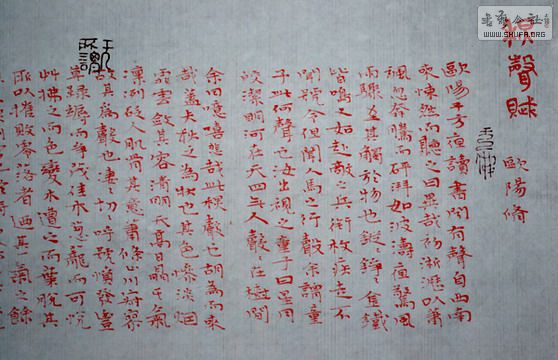 穐聲賦
歐陽脩
歐陽子方夜讀書聞有聲自西南
來悚然而聽之曰異哉初淅瀝以蕭
颯忽奔騰而砰湃如波濤夜驚風
雨驟至其觸於物也鏦〻錚〻金鐵
皆鳴又如赴敵之兵銜枚疾走不
聞號令但聞人馬之行聲余謂童
子此何聲也汝出視之童子曰星月
皎潔明河在天四無人聲〻在樹間
余曰噫嘻悲哉此穐聲也胡為而來
哉蓋夫秋之為狀也其色慘淡烟
霏雲斂其容清明天高日晶其氣
凜冽砭人肌骨其意蕭條山川寂寥
故其為聲也淒〻切〻呼號憤發豐
草綠縟而爭茂佳木蔥蘢而可悅
草拂之而色變木遭之而葉脫其
所以摧敗零落者迺其一氣之餘
WWW.SHUFA.ORG